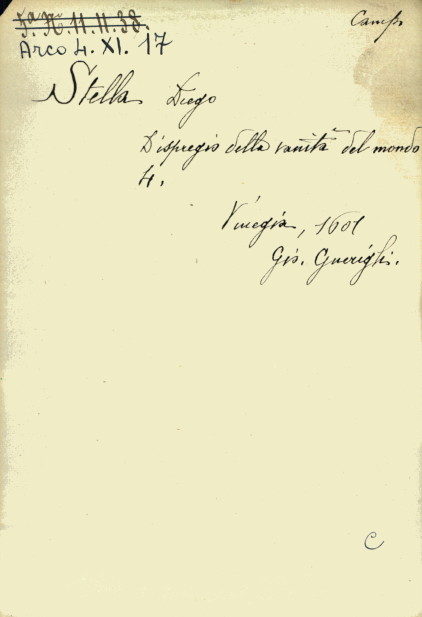 Camp.
Arco 4. XI. 17
Stella Diego
Dispregio della vanità del mondo
4.
Vinegia, 1601
Gio. Guerigli.
C